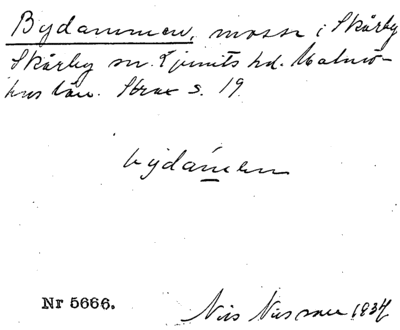 Bydammen, mosse i Skårby
Skårby sn. Ljunits hd. Malmö-
hus län. Strax s. 19.
bydámen
Nr 5666.
Nils Nilsson 1934